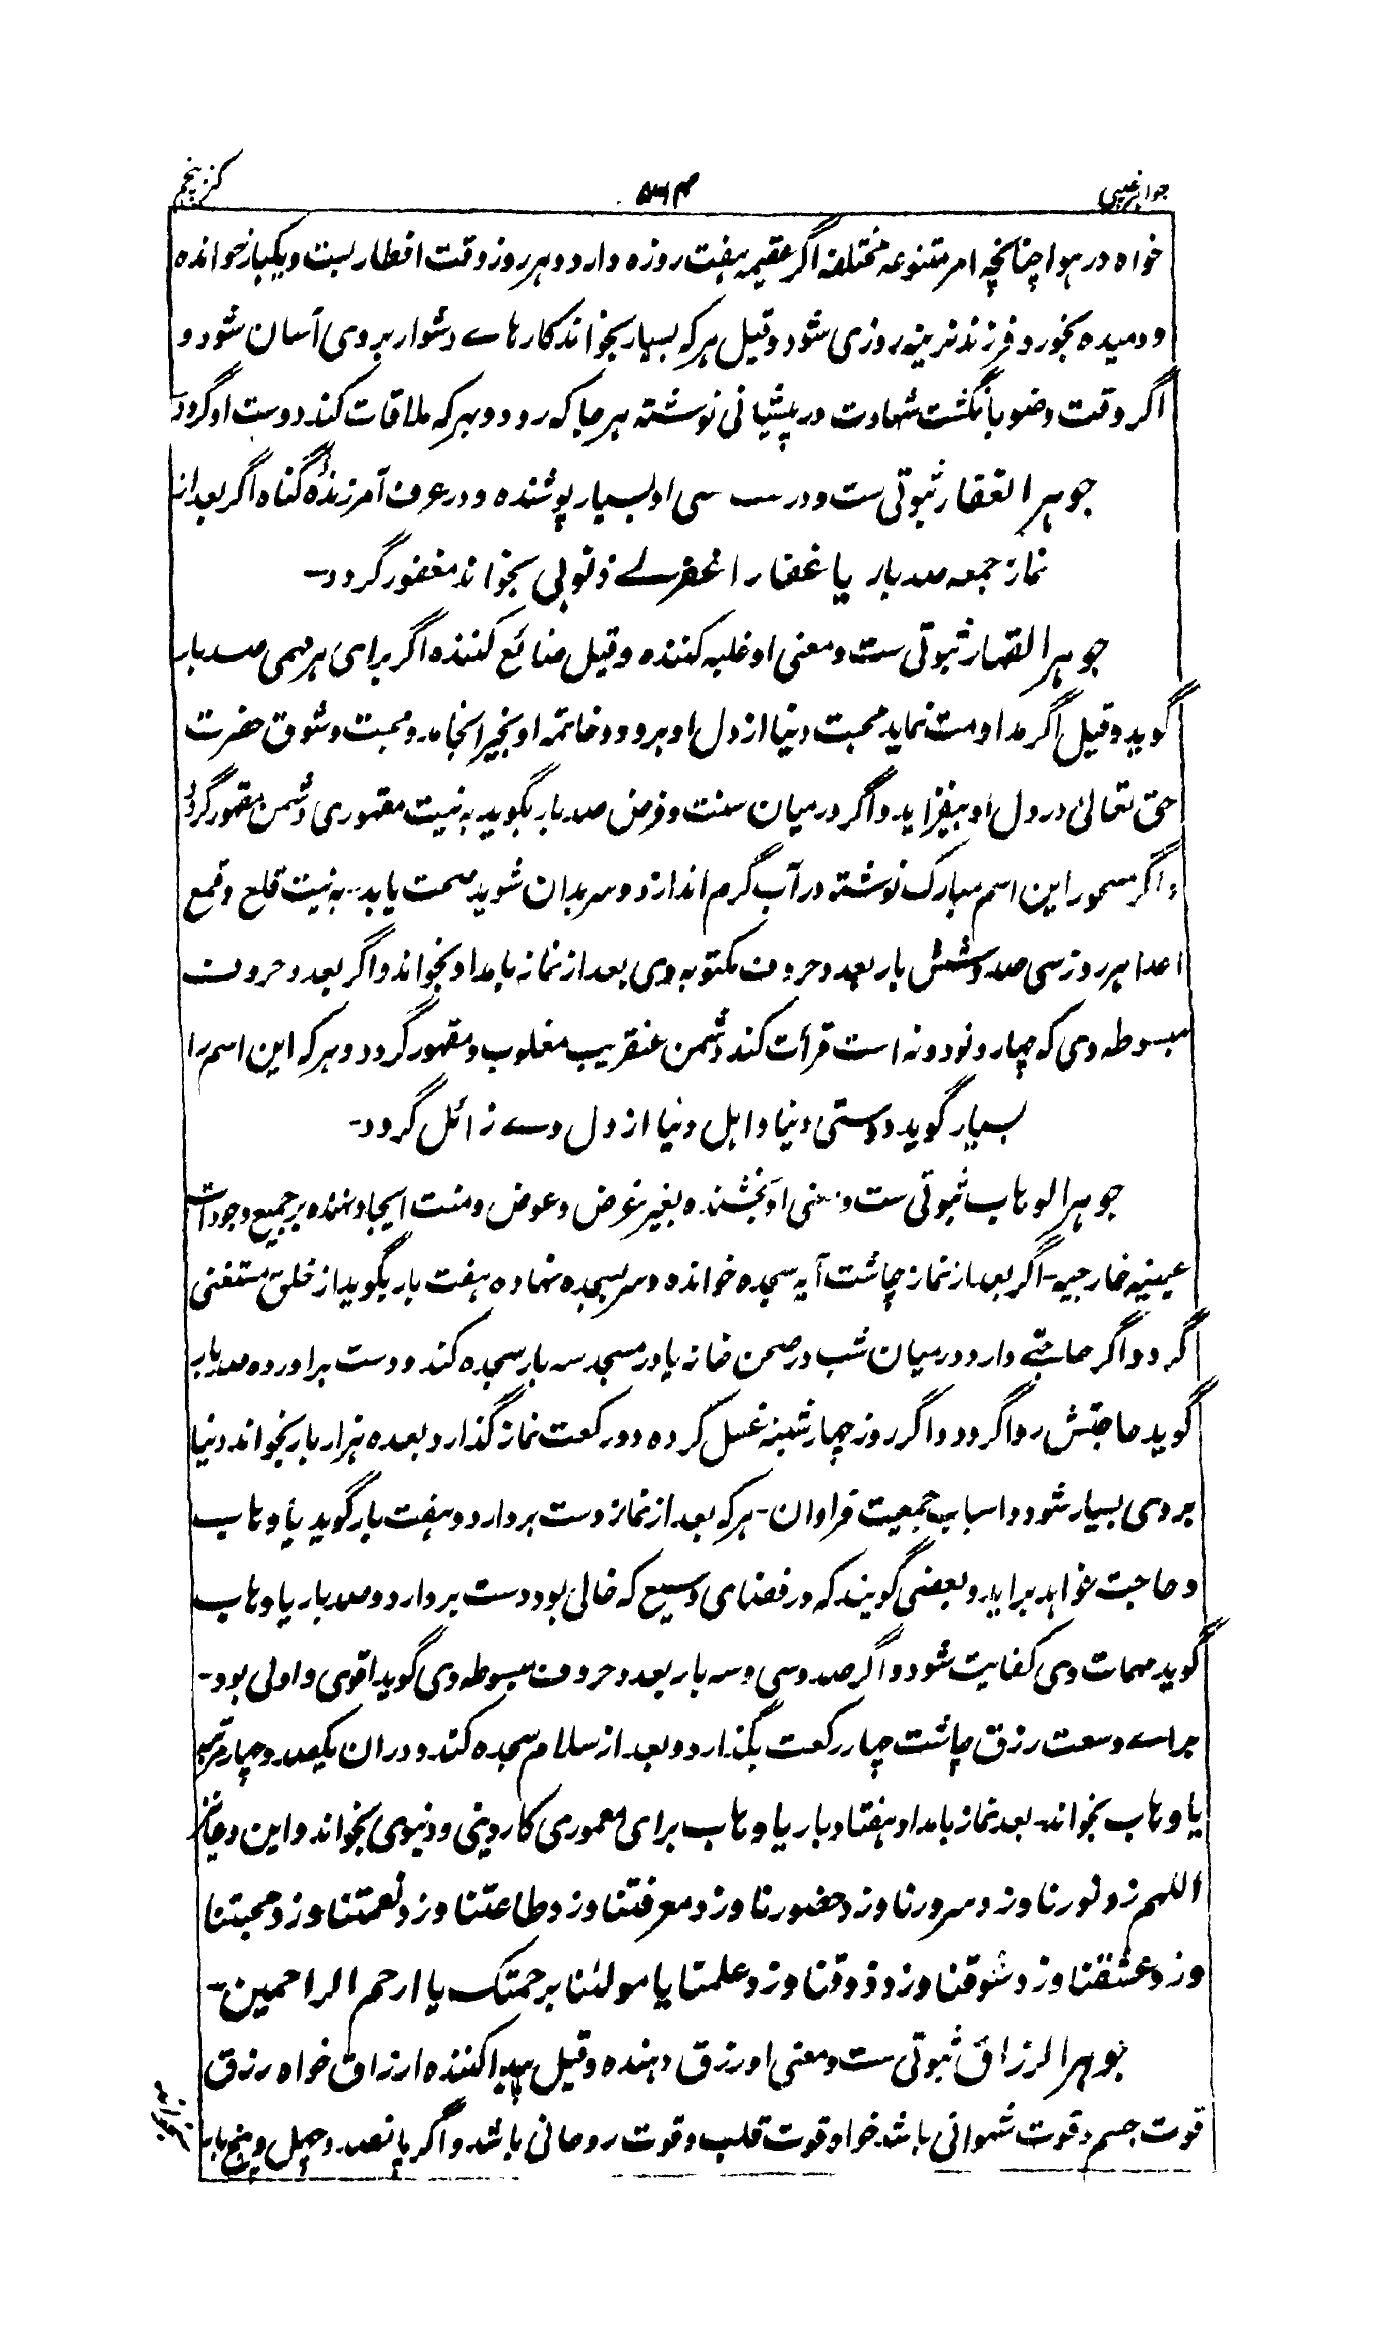 جواہر غیبی
کنز پنجم
خواہ در ہوا چنانچہ امر متنوعہ مختلفہ اگر عقیمہ ہفت روزہ دارد و ہر روز وقت افطار بست و یکبار خواندہ
و دمیدہ بخورد فرزند نرینہ روزی شود و قیل ہر کہ بسیار بخواند کارہاے دشوار بروی آسان شود و
اگر وقت وضو بانگشت شہادت در پیشانی نوشتہ ہر جا کہ رود و بہر کہ ملاقات کند دوست او گردد
جوہر الغفار ثبوتی ست و در سی او بسیار پوشندہ و در عرف آمرزندہ گناہ اگر بعد از
نماز جمعہ صد بار یا غفار اغفرلے ذنوبی بخواند مغفور گردد۔
جوہر القہار ثبوتی ست و معنی او غلبہ کنندہ و قیل ضائع کنندہ اگر برای ہر مہمی صد بار
گوید و قیل اگر مداومت نماید محبت دنیا از دل او برود و خاتمہ او بخیر انجامد و محبت و شوق حضرت
حق تعالیٰ در دل او بیفزاید و اگر درمیان سنت و فرض صد بار بگوید بہ نیت مقہوری دشمن مقہور گردد
و اگر مسحور این اسم مبارک نوشتہ در آب گرم اندازد و سر بدان شوید صحت یابد۔ بہ نیت قلع و قمع
اعدا ہر روز سی صد و شش بار بعدد حروف مکتوبہ وی بعد از نماز بامداد بخواند و اگر بعدد حروف
مبسوطہ وی کہ چہار و نود و نہ است قرأت کند دشمن عنقریب مغلوب و مقہور گردد و ہر کہ این اسم را
بسیار گوید دوستی دنیا و اہل دنیا از دل وے زائل گردد۔
جوہر الوہاب ثبوتی ست و معنی او بخشندہ بغیر غرض و عوض و منت ایجاد نہندہ بر جمیع وجودات
عینیہ خارجیہ۔ اگر بعد از نماز چاشت آیہ سجدہ خواندہ و سر بسجدہ نہادہ ہفت بار بگوید از خلق مستغنی
گردد و اگر حاجتے دارد درمیان شب در صحن خانہ یا در مسجد سہ بار سجدہ کند و دست براوردہ صد بار
گوید حاجتش روا گردد و اگر روز چہار شنبہ غسل کردہ دو رکعت نماز گذارد بعدہ ہزار بار بخواند دنیا
بر وی بسیار شود و اسباب جمعیت فراوان۔ ہر کہ بعد از نماز دست بردارد و ہفت بار گوید یا وہاب
و حاجت خواہد براید و بعضی گویند کہ در فضای وسیع کہ خالی بود دست بردارد و صد بار یا وہاب
گوید مہمات وی کفایت شود و اگر صد و سی و سہ بار بعدد حروف مبسوطہ وی گوید اقوی و اولی بود۔
براے وسعت رزق چاشت چہار رکعت بگذارد و بعد از سلام سجدہ کند و دران یکصد و چہار مرتبہ
یا وہاب بخواند۔ بعد نماز بامداد ہفتاد بار یا وہاب برای معموری کار دینی و دنیوی بخواند و این دعا نیز
اللہم زد نورنا وزد سرورنا وزد حضورنا وزد معرفتنا وزد طاعتنا وزد نعمتنا وزد محبتنا
وزد عشقنا وزد شوقنا وزد ذوقنا وزد علمنا یا مولٰنا برحمتک یا ارحم الراحمین۔
جوہر الرزاق ثبوتی ست و معنی او رزق دہندہ و قیل پیدا کنندہ ارزاق خواہ رزق
قوت جسم و قوت شہوانی باشد خواہ قوت قلب و قوت روحانی باشد و اگر پانصد و چہل و پنج بار
بخواند